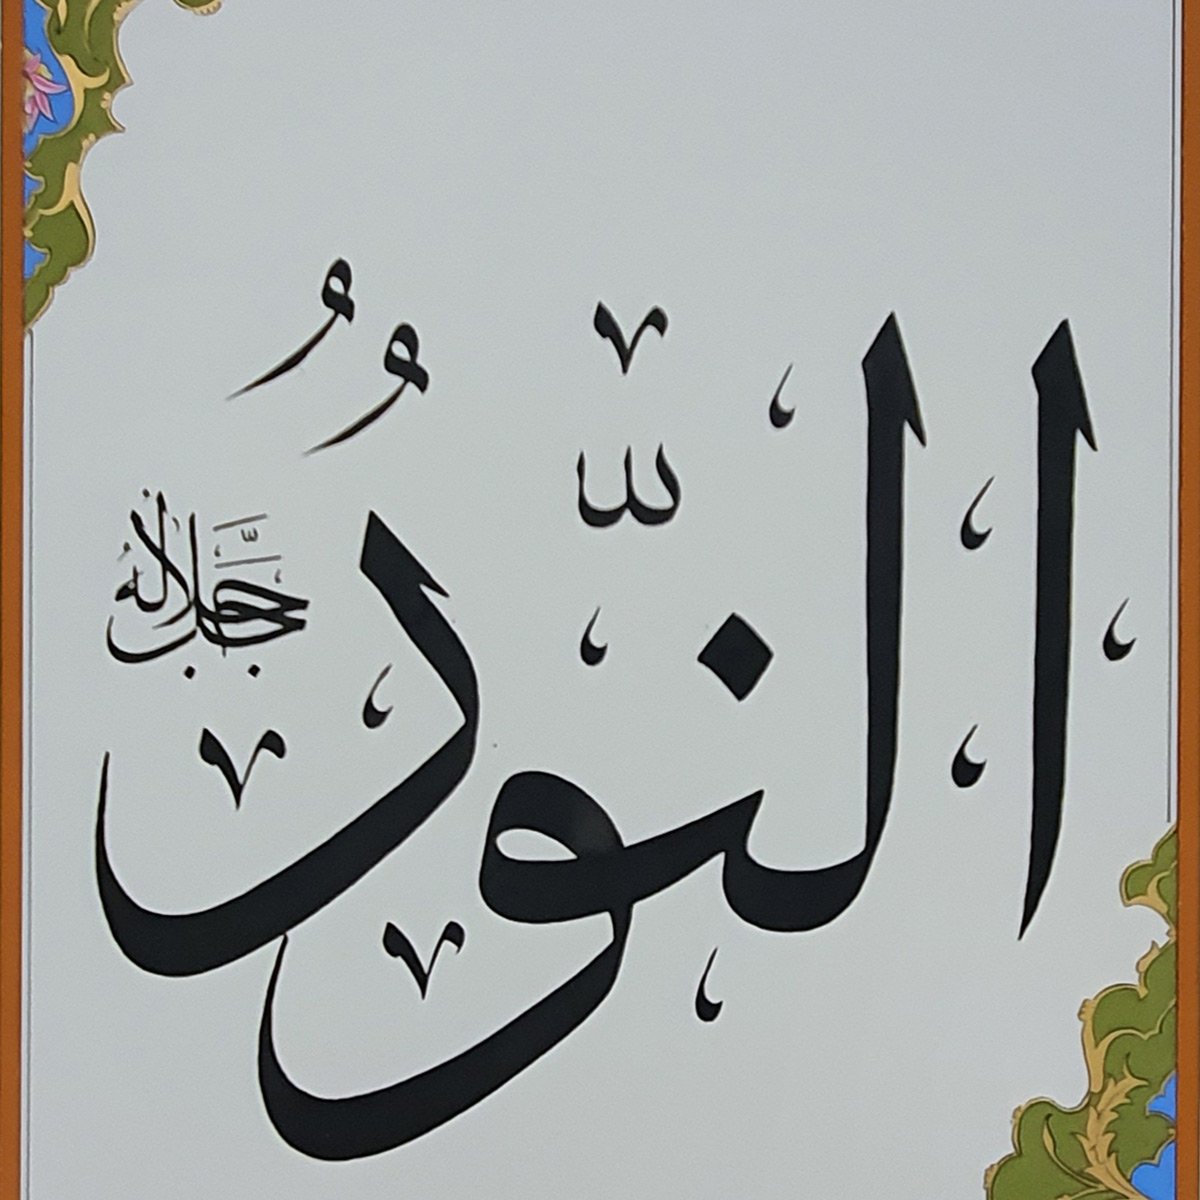 النُّورُ
جَلَّ جَلَالُهُ